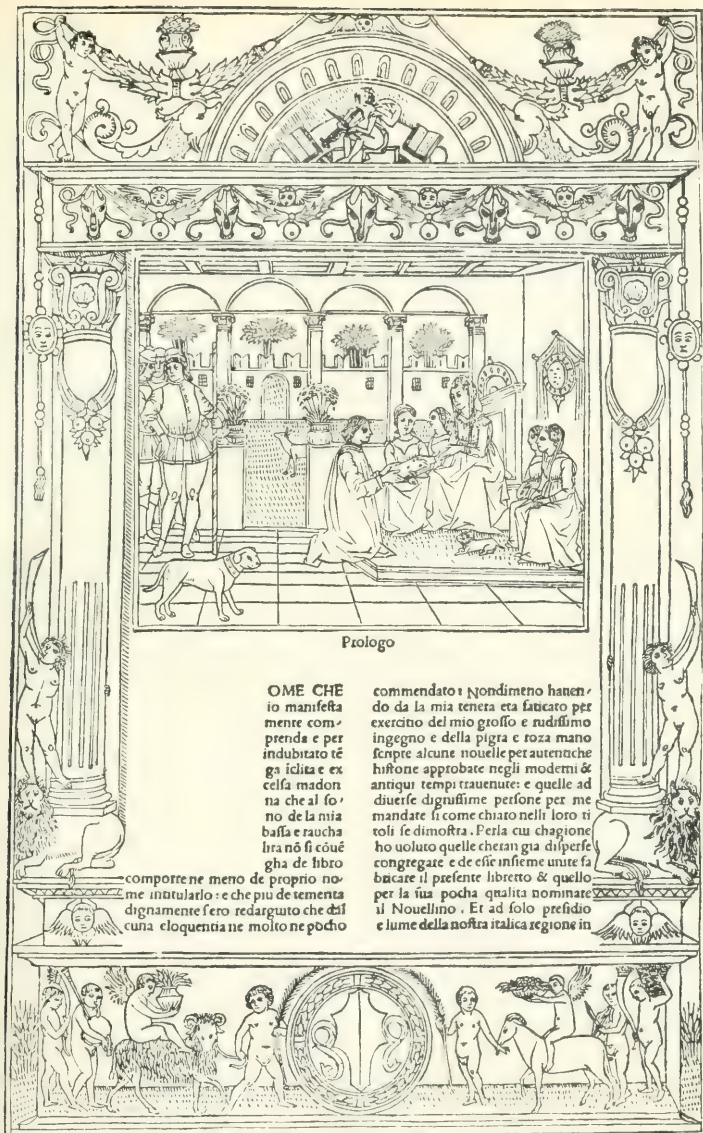 Prologo
OME CHE
io manifesta
mente com-
prenda e per
indubitato tē
ga iclita e ex
celsa madon
na che al so-
no de la mia
bassa e raucha
lira nō si cōuē
gha de libro
comporre ne meno de proprio no-
me intitularlo : e che piu de tementa
dignamente sero redarguito che
cuna eloquentia ne molto ne pocho
commendato : Nondimeno hauen-
do da la mia tenera eta faticato per
exercitio del mio grosso e rudissimo
ingegno e della pigra e roza mano
scripte alcune nouelle per autentiche
historie approbate negli moderni &
antiqui tempi trauenute: e quelle ad
diuerse dignissime persone per me
mandate si come chiaro nelli loro ti
toli se dimostra . Perla cui chagione
ho uoluto quelle cheran gia disperse
congregare e de esse insieme unite fa
bricare il presente libretto & quello
per la sua pocha qualita nominare
il Nouellino . Et ad solo presidio
e lume della nostra italica regione in